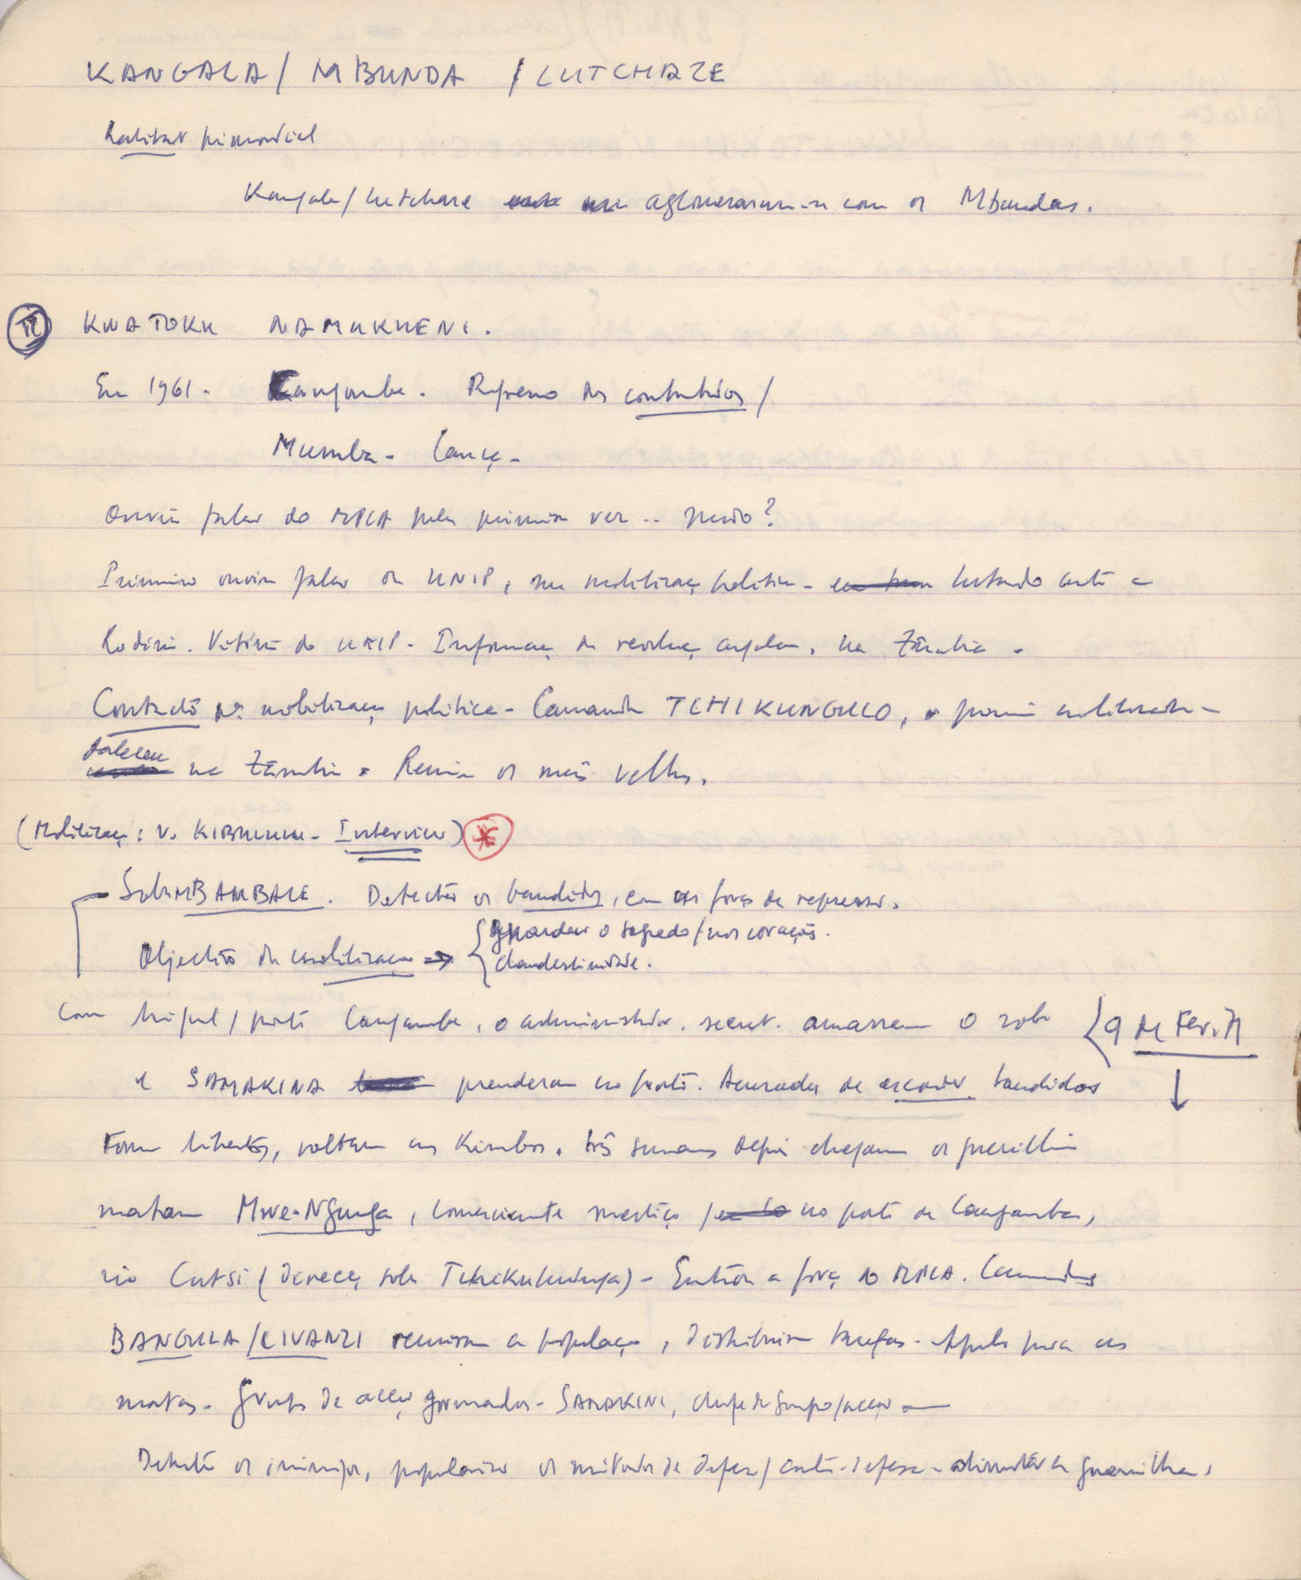 KANGALA / MBUNDA / LUTCHAZE
Kangala / Lutchaze aglomeraram-se com os Mbundas.
II KWATOKU NAMUKUENI.
Em 1961 - Cangombe. Regresso dos contratados /
Mumba -
Ouviu falar do MPLA pela primeira vez .. quando?
Primeiro ouvim falar da UNIP, sua mobilização política - lutando contra a
Rodésia. Vitória da UNIP - Informação da revolução angolana, na Zâmbia -
Contacto pª mobilização política - Camarada TCHIKUNGULO, o primeiro mobilizador -
faleceu na Zâmbia. Reuniu os mais velhos.
(Mobilização: v. KIBMUMU - Interview) *
Soba MBAMBALE. Detectar os bandidos, com as forças de repressão.
Objectivo da mobilização → { guardar o segredo / nos corações.
clandestinidade.
Com Miguel / posto Cangamba, o administrador. secret. amassaram o soba { 9 de Fev. 71
e SAMAKINA prenderam no posto. Acusados de esconder bandidos
Foram libertos, voltam aos Kimbos. três semanas depois chegam os guerrilheiros
matam Mwe-Ngunga, comerciante mestiço / no posto de Cangamba,
rio Cutsi (direcção soba ) - Entrou a força do MPLA. Comandos
BANGULA / LIVANZI reuniram a população, distribuiram tarefas - Apelo para as
matas - Grupos de acção formados - SAMAKINI, chefe de Grupo / acção —
Detectar os inimigos, popularizar os métodos de defesa / contra-defesa - alimentar a guerrilha.